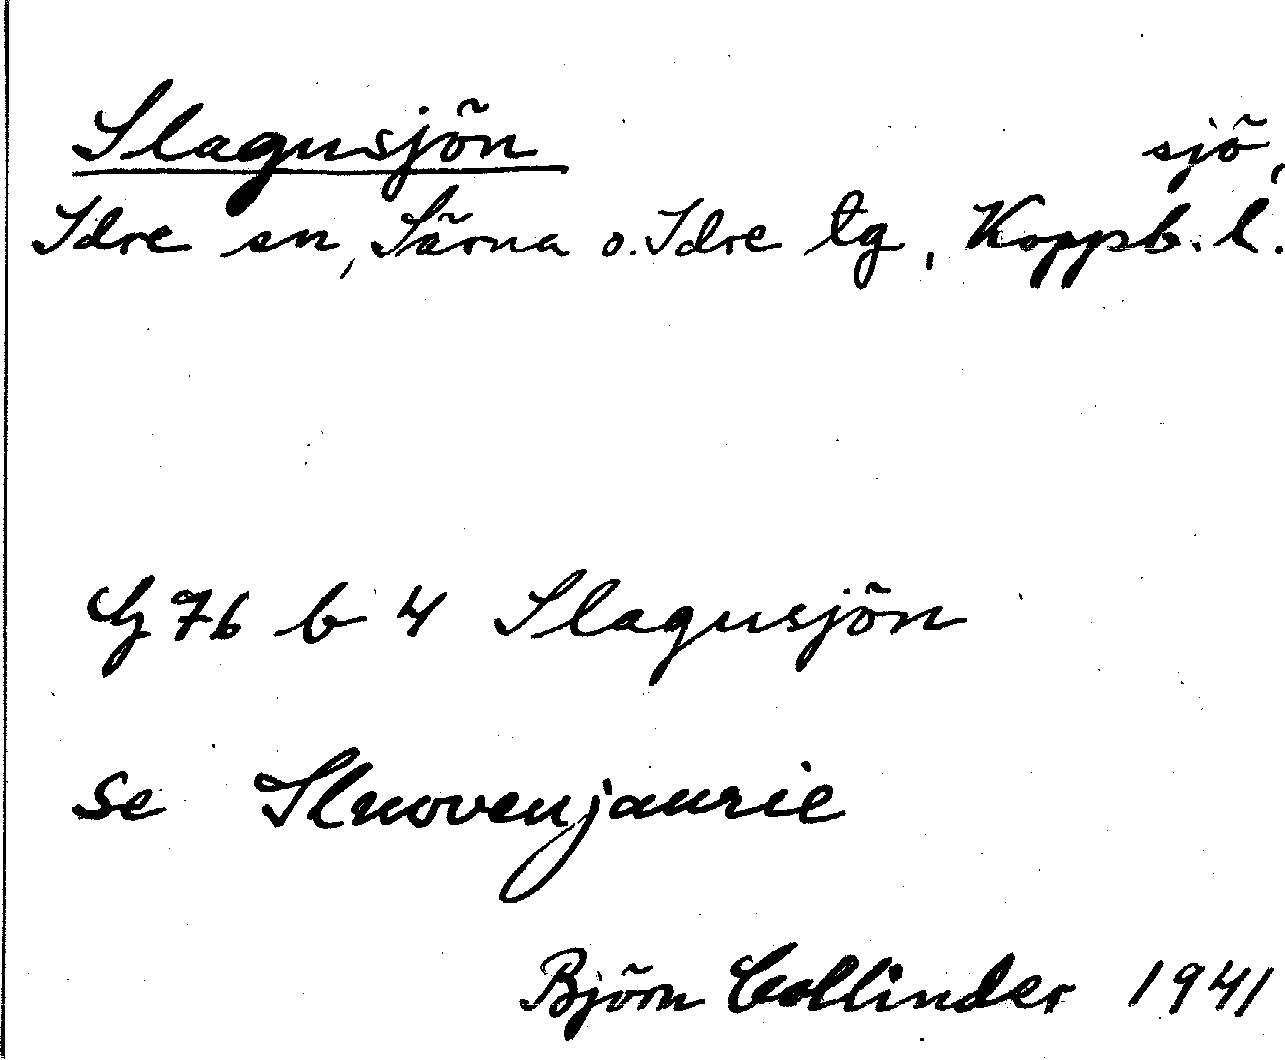 Slagusjön sjö,
Idre sn, Särna o. Idre tg, Koppb. l.
G 76 b 4 Slagusjön
se Sluovenjaurie
Björn Collinder 1941